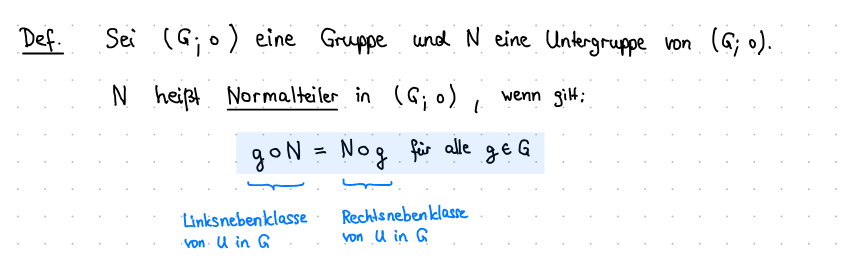 Def. Sei (G; ∘) eine Gruppe und N eine Untergruppe von (G; ∘).
N heißt Normalteiler in (G; ∘), wenn gilt:
g∘N = N∘g für alle g∈G
Linksnebenklasse Rechtsnebenklasse
von U in G von U in G